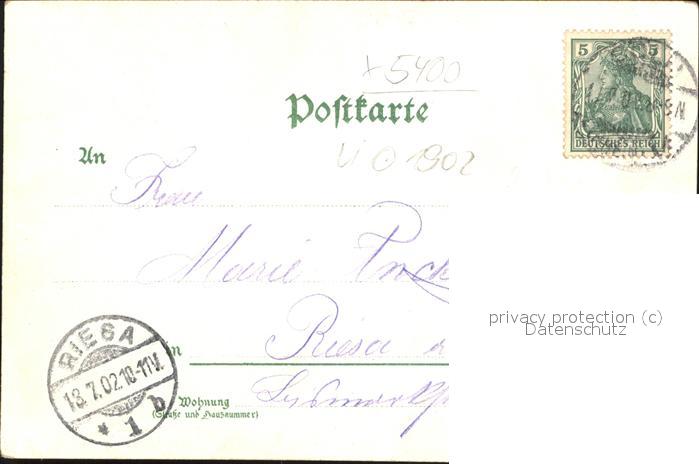 x 5400
5 5
DEUTSCHES REICH
Postkarte
An
1902
Frau
Marie
Riesa a
in
RIESA
18.7.02.10-11V.
* 1 b
Wohnung
(Straße und Hausnummer)
privacy protection (c)
Datenschutz